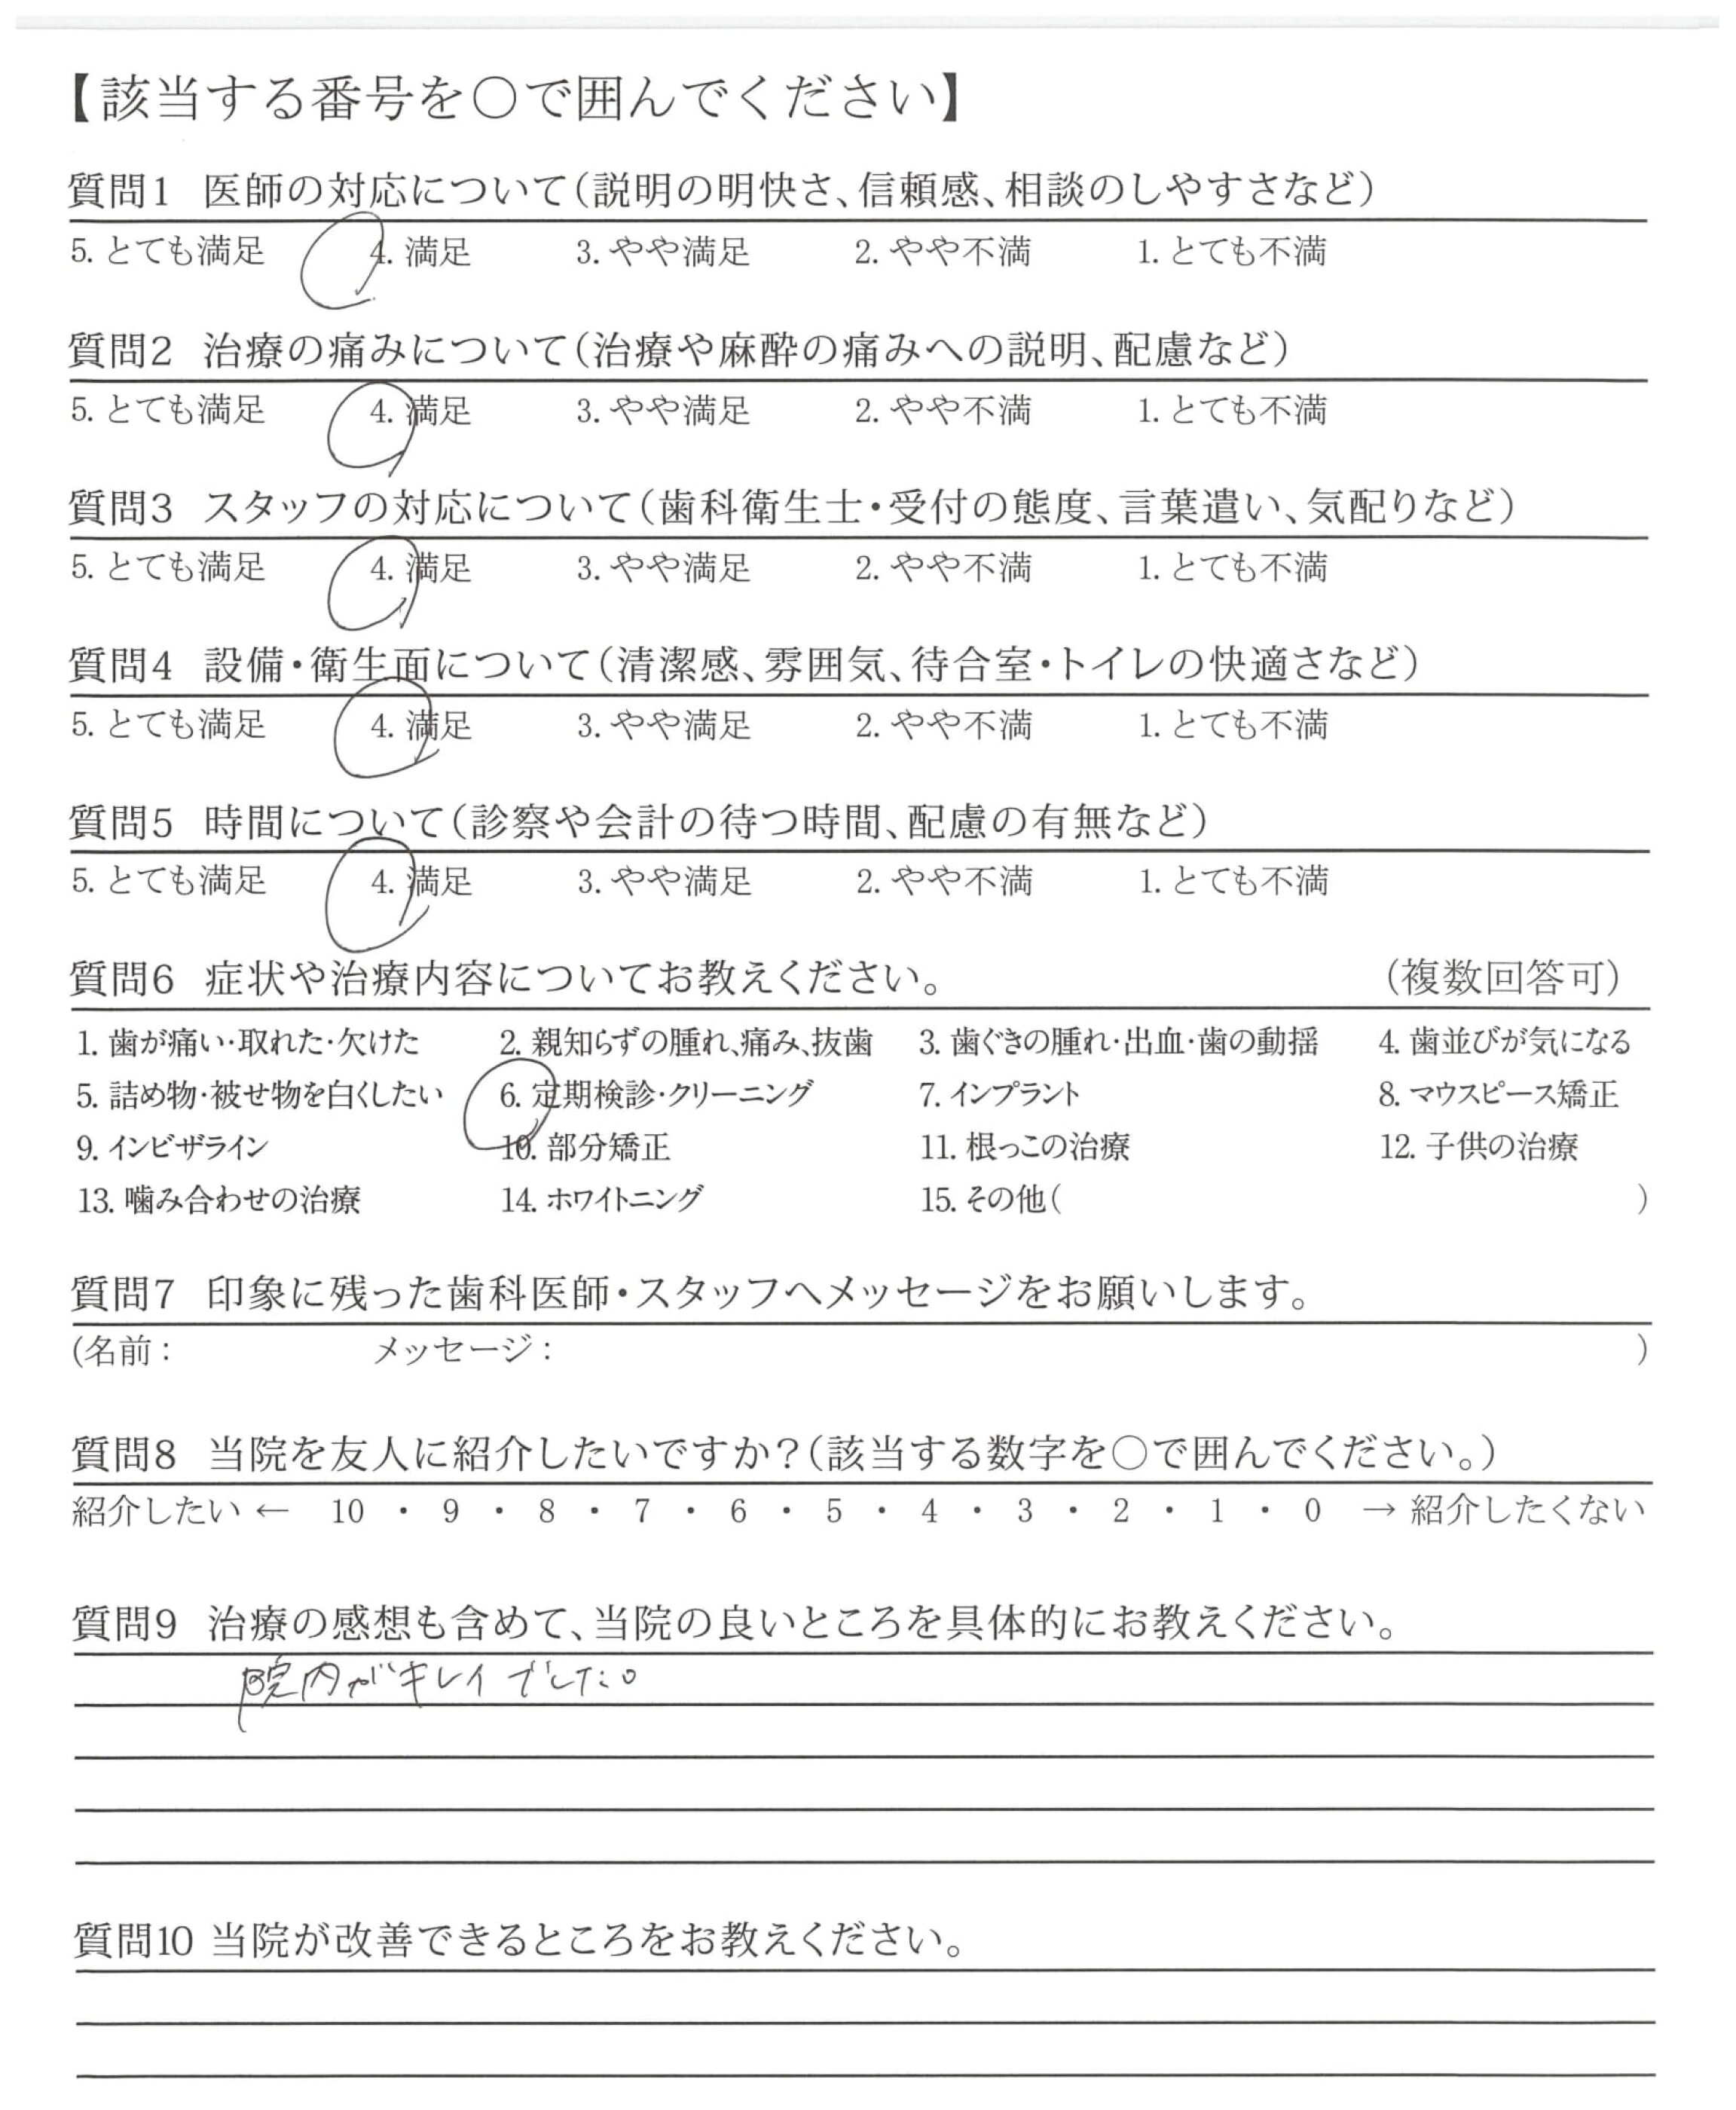 【該当する番号を○で囲んでください】
質問1 医師の対応について(説明の明快さ、信頼感、相談のしやすさなど)
5. とても満足 4. 満足 3. やや満足 2. やや不満 1. とても不満
質問2 治療の痛みについて(治療や麻酔の痛みへの説明、配慮など)
5. とても満足 4. 満足 3. やや満足 2. やや不満 1. とても不満
質問3 スタッフの対応について(歯科衛生士・受付の態度、言葉遣い、気配りなど)
5. とても満足 4. 満足 3. やや満足 2. やや不満 1. とても不満
質問4 設備・衛生面について(清潔感、雰囲気、待合室・トイレの快適さなど)
5. とても満足 4. 満足 3. やや満足 2. やや不満 1. とても不満
質問5 時間について(診察や会計の待つ時間、配慮の有無など)
5. とても満足 4. 満足 3. やや満足 2. やや不満 1. とても不満
質問6 症状や治療内容についてお教えください。 (複数回答可)
1. 歯が痛い・取れた・欠けた 2. 親知らずの腫れ、痛み、抜歯 3. 歯ぐきの腫れ・出血・歯の動揺 4. 歯並びが気になる
5. 詰め物・被せ物を白くしたい 6. 定期検診・クリーニング 7. インプラント 8. マウスピース矯正
9. インビザライン 10. 部分矯正 11. 根っこの治療 12. 子供の治療
13. 噛み合わせの治療 14. ホワイトニング 15. その他( )
質問7 印象に残った歯科医師・スタッフへメッセージをお願いします。
(名前: メッセージ: )
質問8 当院を友人に紹介したいですか?(該当する数字を○で囲んでください。)
紹介したい ← 10 ・ 9 ・ 8 ・ 7 ・ 6 ・ 5 ・ 4 ・ 3 ・ 2 ・ 1 ・ 0 → 紹介したくない
質問9 治療の感想も含めて、当院の良いところを具体的にお教えください。
院内がキレイでした。
質問10 当院が改善できるところをお教えください。